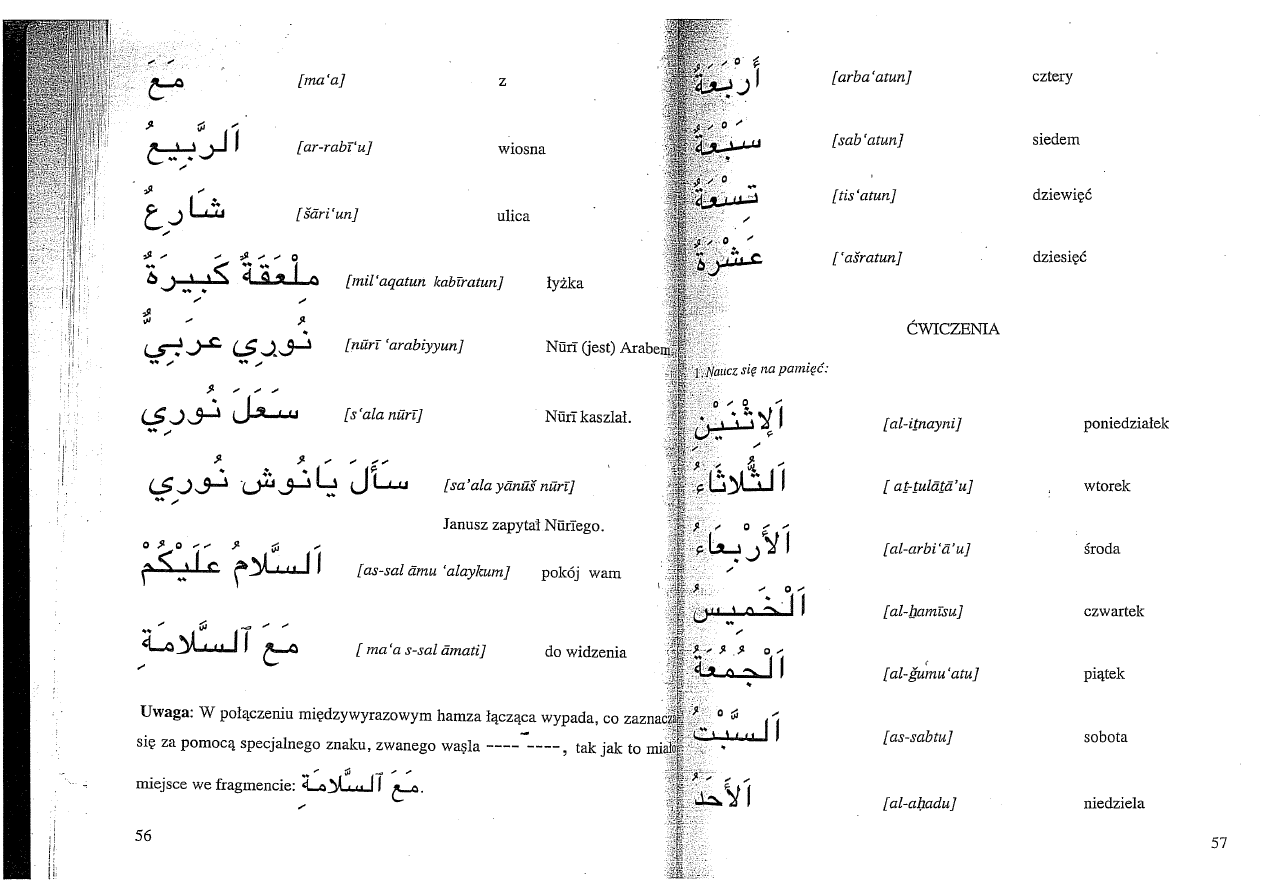 مَعَ [ma‘a] z
اَلرَّبِيعُ [ar-rabī‘u] wiosna
شَارِعٌ [šāri‘un] ulica
مِلْعَقَةٌ كَبِيرَةٌ [mil‘aqatun kabīratun] łyżka
نُورِي عَرَبِيٌّ [nūrī ‘arabiyyun] Nūrī (jest) Arabem
سَعَلَ نُورِي [s‘ala nūrī] Nūrī kaszlał.
سَأَلَ يَانُوش نُورِي [sa’ala yānūš nūrī]
Janusz zapytał Nūrīego.
اَلسَّلامُ عَلَيْكُمْ [as-sal āmu ‘alaykum] pokój wam
مَعَ ٱلسَّلامَةِ [ ma‘a s-sal āmati] do widzenia
Uwaga: W połączeniu międzywyrazowym hamza łącząca wypada, co zaznacza
się za pomocą specjalnego znaku, zwanego waṣla ---- ̃ ----, tak jak to miało
miejsce we fragmencie: مَعَ ٱلسَّلامَةِ.
56
أَرْبَعَةٌ [arba‘atun] cztery
سَبْعَةٌ [sab‘atun] siedem
تِسْعَةٌ [tis‘atun] dziewięć
عَشْرَةٌ [‘ašratun] dziesięć
ĆWICZENIA
1.Naucz się na pamięć:
اَلإثْنَيْنِ [al-iṯnayni] poniedziałek
اَلثُّلاثَاءُ [ aṯ-ṯulāṯā’u] wtorek
اَلأَرْبِعَاءُ [al-arbi‘ā’u] środa
اَلْخَمِيسُ [al-ḫamīsu] czwartek
اَلْجُمُعَةُ [al-ǧumu‘atu] piątek
اَلسَّبْتُ [as-sabtu] sobota
اَلأَحَدُ [al-aḥadu] niedziela
57